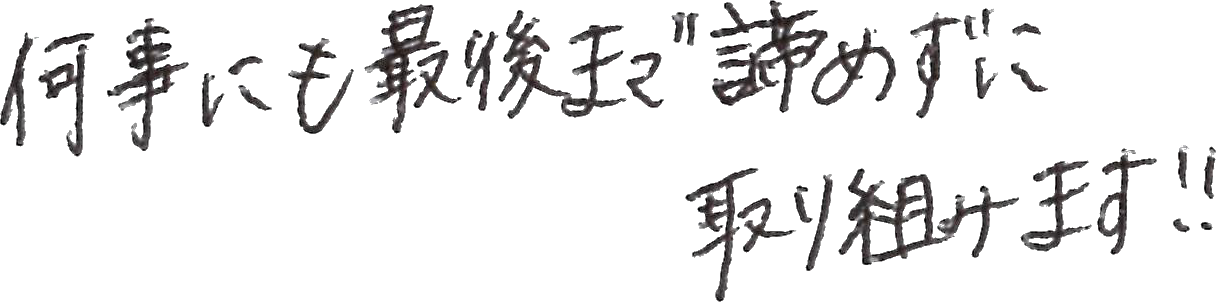 何事にも最後まで諦めずに
取り組みます!!